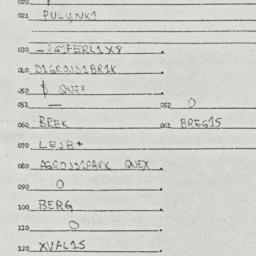 020
021 PULYNK1
030 _JG1FERL1X8.
040 D1GROJS1BR1K
050 $ QUEX.
051 — 052 O
060 BREK 061 BREG1S
070 LEJB+
080 AGROJS1PARK QUEX.
090 O.
100 BERG.
110 O.
120 XVAL1S.